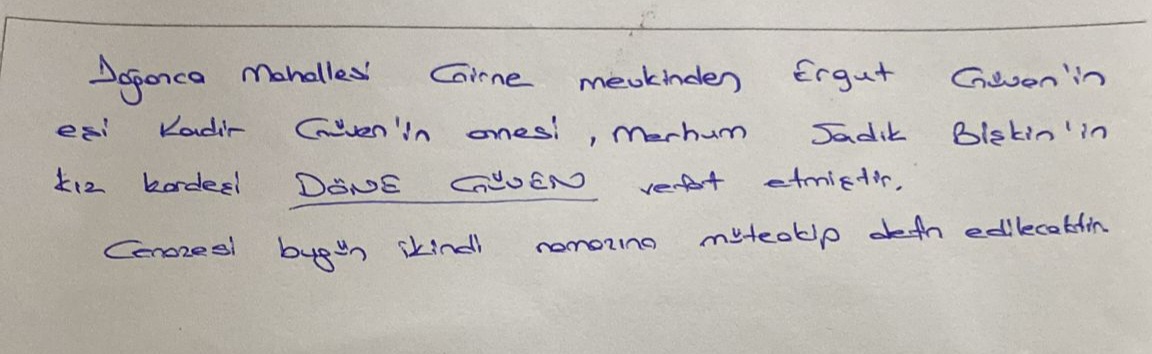 Doğanca Mahallesi Girne mevkinden Ergut Güven'in
eşi Kadir Güven'in annesi, Merhum Sadık Bişkin'in
kız kardeşi DÖNE GÜVEN vefat etmiştir.
Cenazesi bugün ikindi namazına müteakip defn edilecektir.